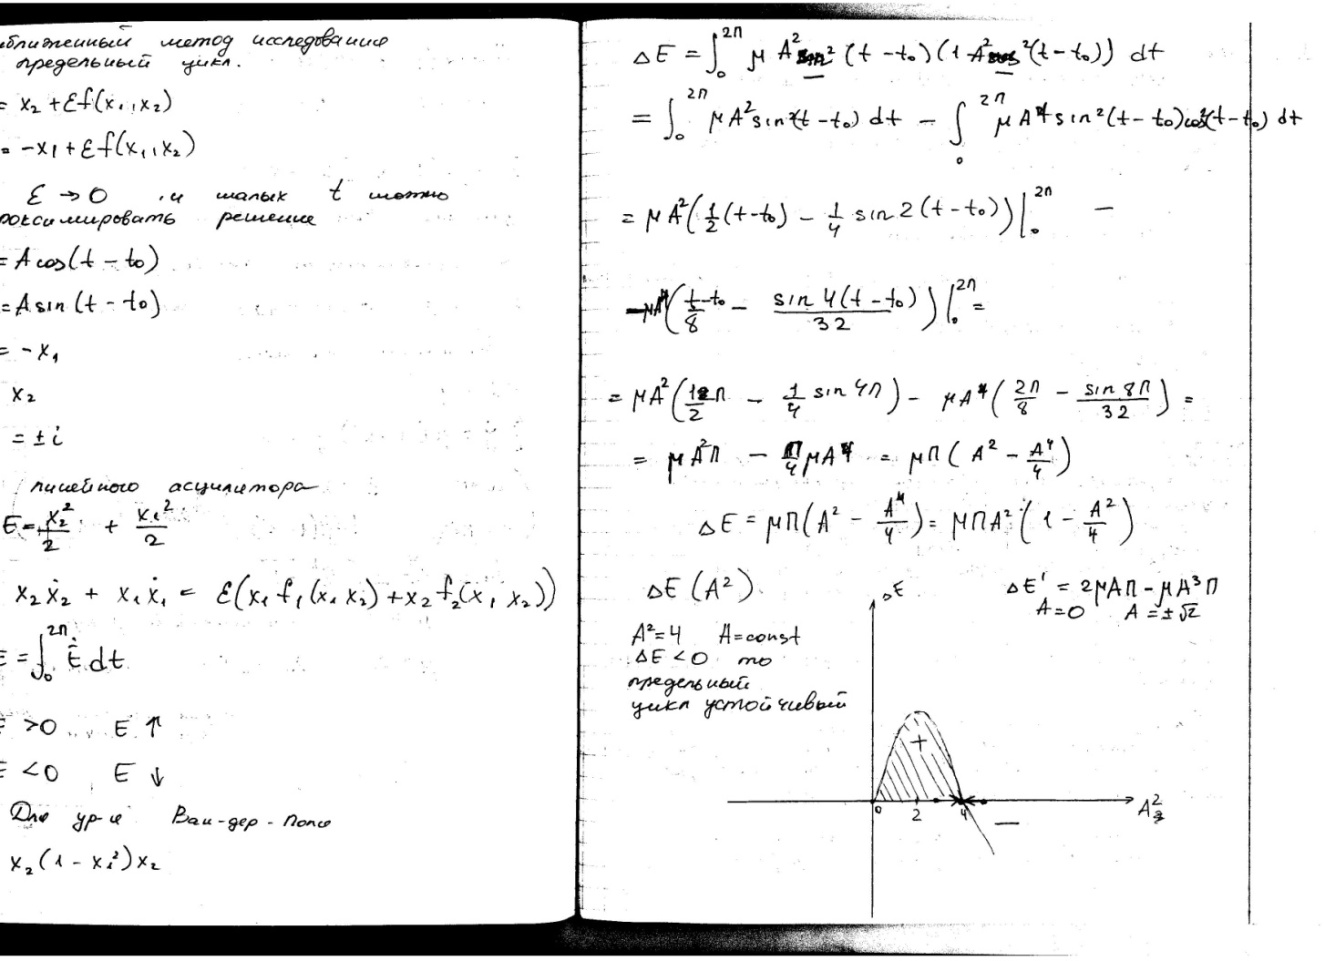 ближенный метод исследования
предельный цикл.
= x₂ + Ɛf(x₁, x₂)
= -x₁ + Ɛf(x₁, x₂)
Ɛ → 0 и малых t можно
роксимировать решение
= A cos(t - t₀)
= A sin(t - t₀)
= -x₁
x₂
= ± i
линейного асцилятора
E = x₂²/2 + x₁²/2
x₂ẋ₂ + x₁ẋ₁ = Ɛ(x₁ f₁(x₁ x₂) + x₂ f₂(x₁ x₂))
E = ∫₀^2π Ė dt
E > 0 E ↑
E < 0 E ↓
Для ур-я Ван-дер-Поля
x₂(1 - x₁²)x₂
ΔE = ∫₀^2π μ A² sin²(t - t₀)(1 - A² cos²(t - t₀)) dt
= ∫₀^2π μA² sin²(t - t₀) dt - ∫₀^2π μA⁴ sin²(t - t₀) cos²(t - t₀) dt
= μA²(1/2 (t - t₀) - 1/4 sin 2(t - t₀))|₀^2π -
- μA⁴((t - t₀)/8 - sin 4(t - t₀)/32)|₀^2π =
= μA²(2π/2 - 1/4 sin 4π) - μA⁴(2π/8 - sin 8π/32) =
= μA²π - π/4 μA⁴ = μπ(A² - A⁴/4)
ΔE = μπ(A² - A⁴/4) = μπA²(1 - A²/4)
ΔE(A²)
A² = 4 A = const
ΔE < 0 то
предельный
цикл устойчивый
ΔE' = 2μAπ - μA³π
A = 0 A = ±√2
ΔE
+
0 2 4 A²
—